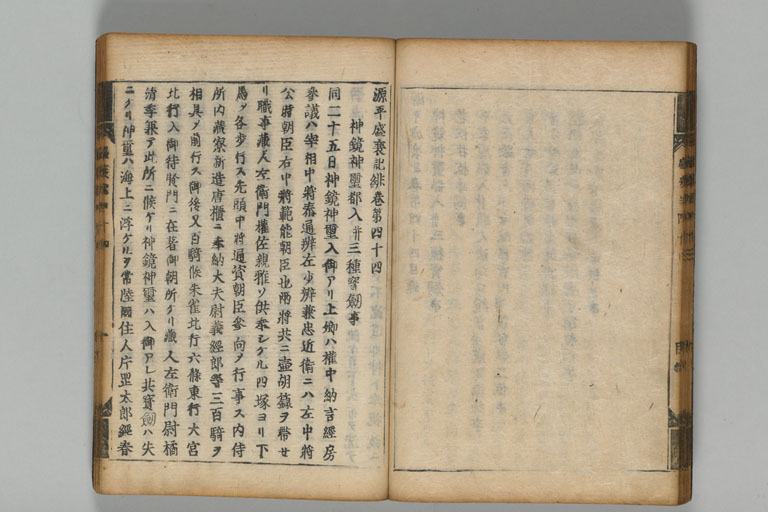 源平盛衰記緋巻第四十四
神鏡神璽都入并三種寳劔事
同二十五日神鏡神璽入御アリ上卿ハ權中納言經房
參議ハ宰相中將泰通辨左少辨兼忠近衛ニハ左中將
公時朝臣右中將範能朝臣也兩將共ニ壺胡籙ヲ帶セ
リ職事藏人左衛門權佐親雅ソ供奉シケル四塚ヨリ下
馬メ各歩行ス先頭中將通資朝臣參向メ行事ス内侍
所内藏寮新造唐櫃ニ奉納大夫尉義經郎等三百騎ヲ
相具メ前行ス御後又百騎候朱雀北行六條東行大宮
北行入御待賢門ニ在著御朝所ケリ藏人左衛門尉橘
清季兼テ此所ニ候ケリ神鏡神璽ハ入御アレ共寳劔ハ失
ニケリ神璽ハ海上ニ浮ケルヲ常陸國住人片罡太郎經春